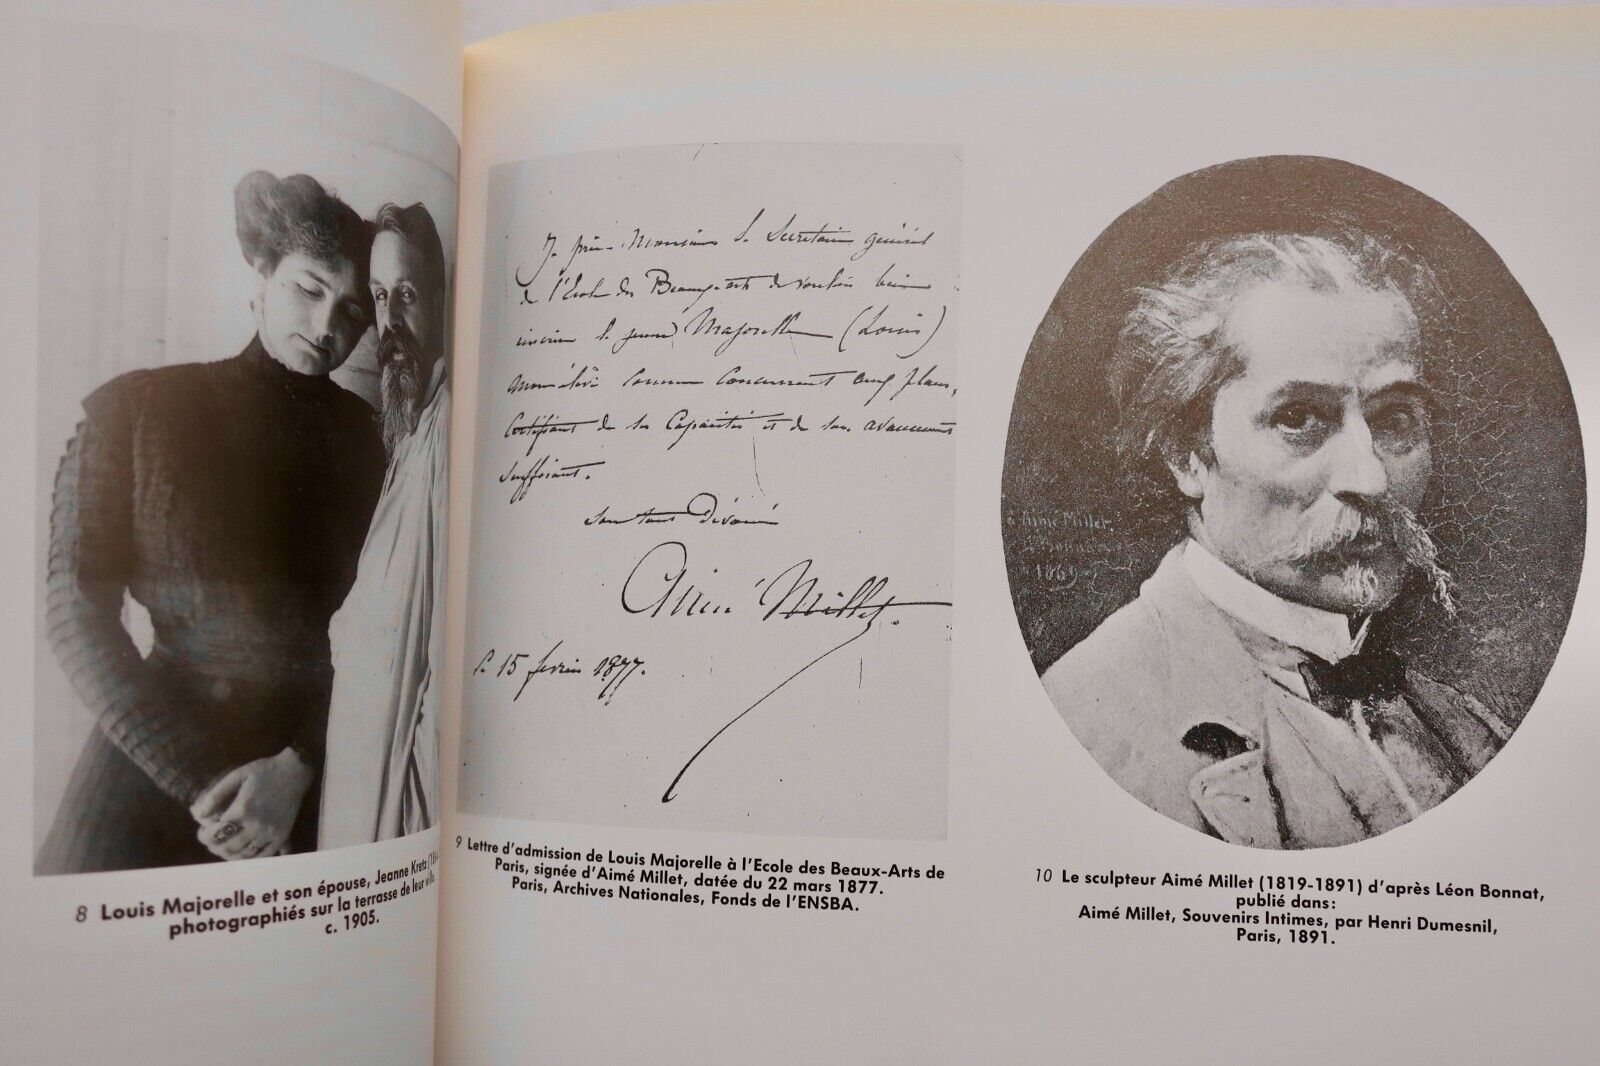 8 Louis Majorelle et son épouse, Jeanne Kretz (186
photographiés sur la terrasse de leur villa.
c. 1905.
Je prie Monsieur le Secrétaire général
de l'Ecole des Beaux-arts de vouloir bien
inscrire le jeune Majorelle (Louis)
comme concurrent aux places,
Certifiant de ses Capacités et de son avancement
suffisant.
Son tout Dévoué
Aimé Millet.
15 fevrier 1877.
9 Lettre d'admission de Louis Majorelle à l'Ecole des Beaux-Arts de
Paris, signée d'Aimé Millet, datée du 22 mars 1877.
Paris, Archives Nationales, Fonds de l'ENSBA.
à Aimé Millet
Bonnat
1869
10 Le sculpteur Aimé Millet (1819-1891) d'après Léon Bonnat,
publié dans:
Aimé Millet, Souvenirs Intimes, par Henri Dumesnil,
Paris, 1891.